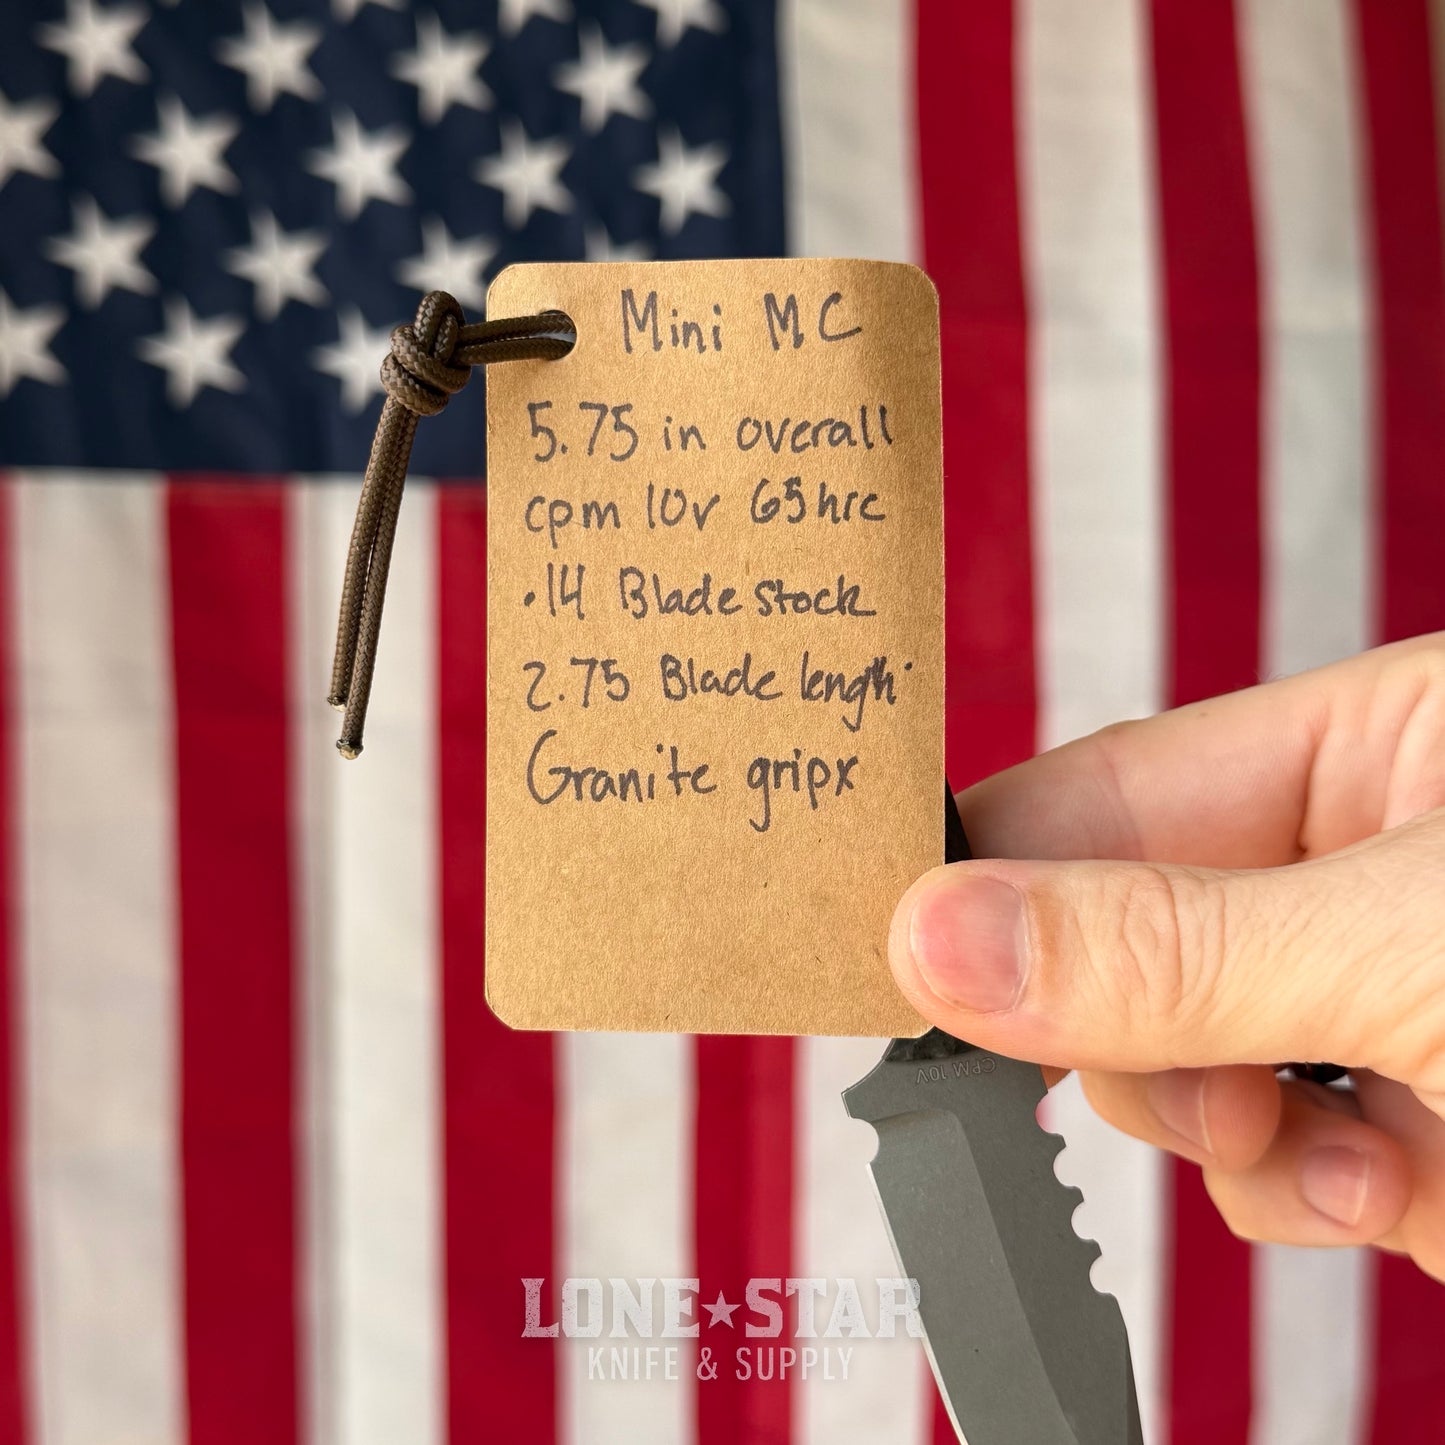 Mini MC
5.75 in overall
cpm 10v 65hrc
.14 Blade stock
2.75 Blade length
Granite gripx
CPM 10V
LONE★STAR
KNIFE & SUPPLY